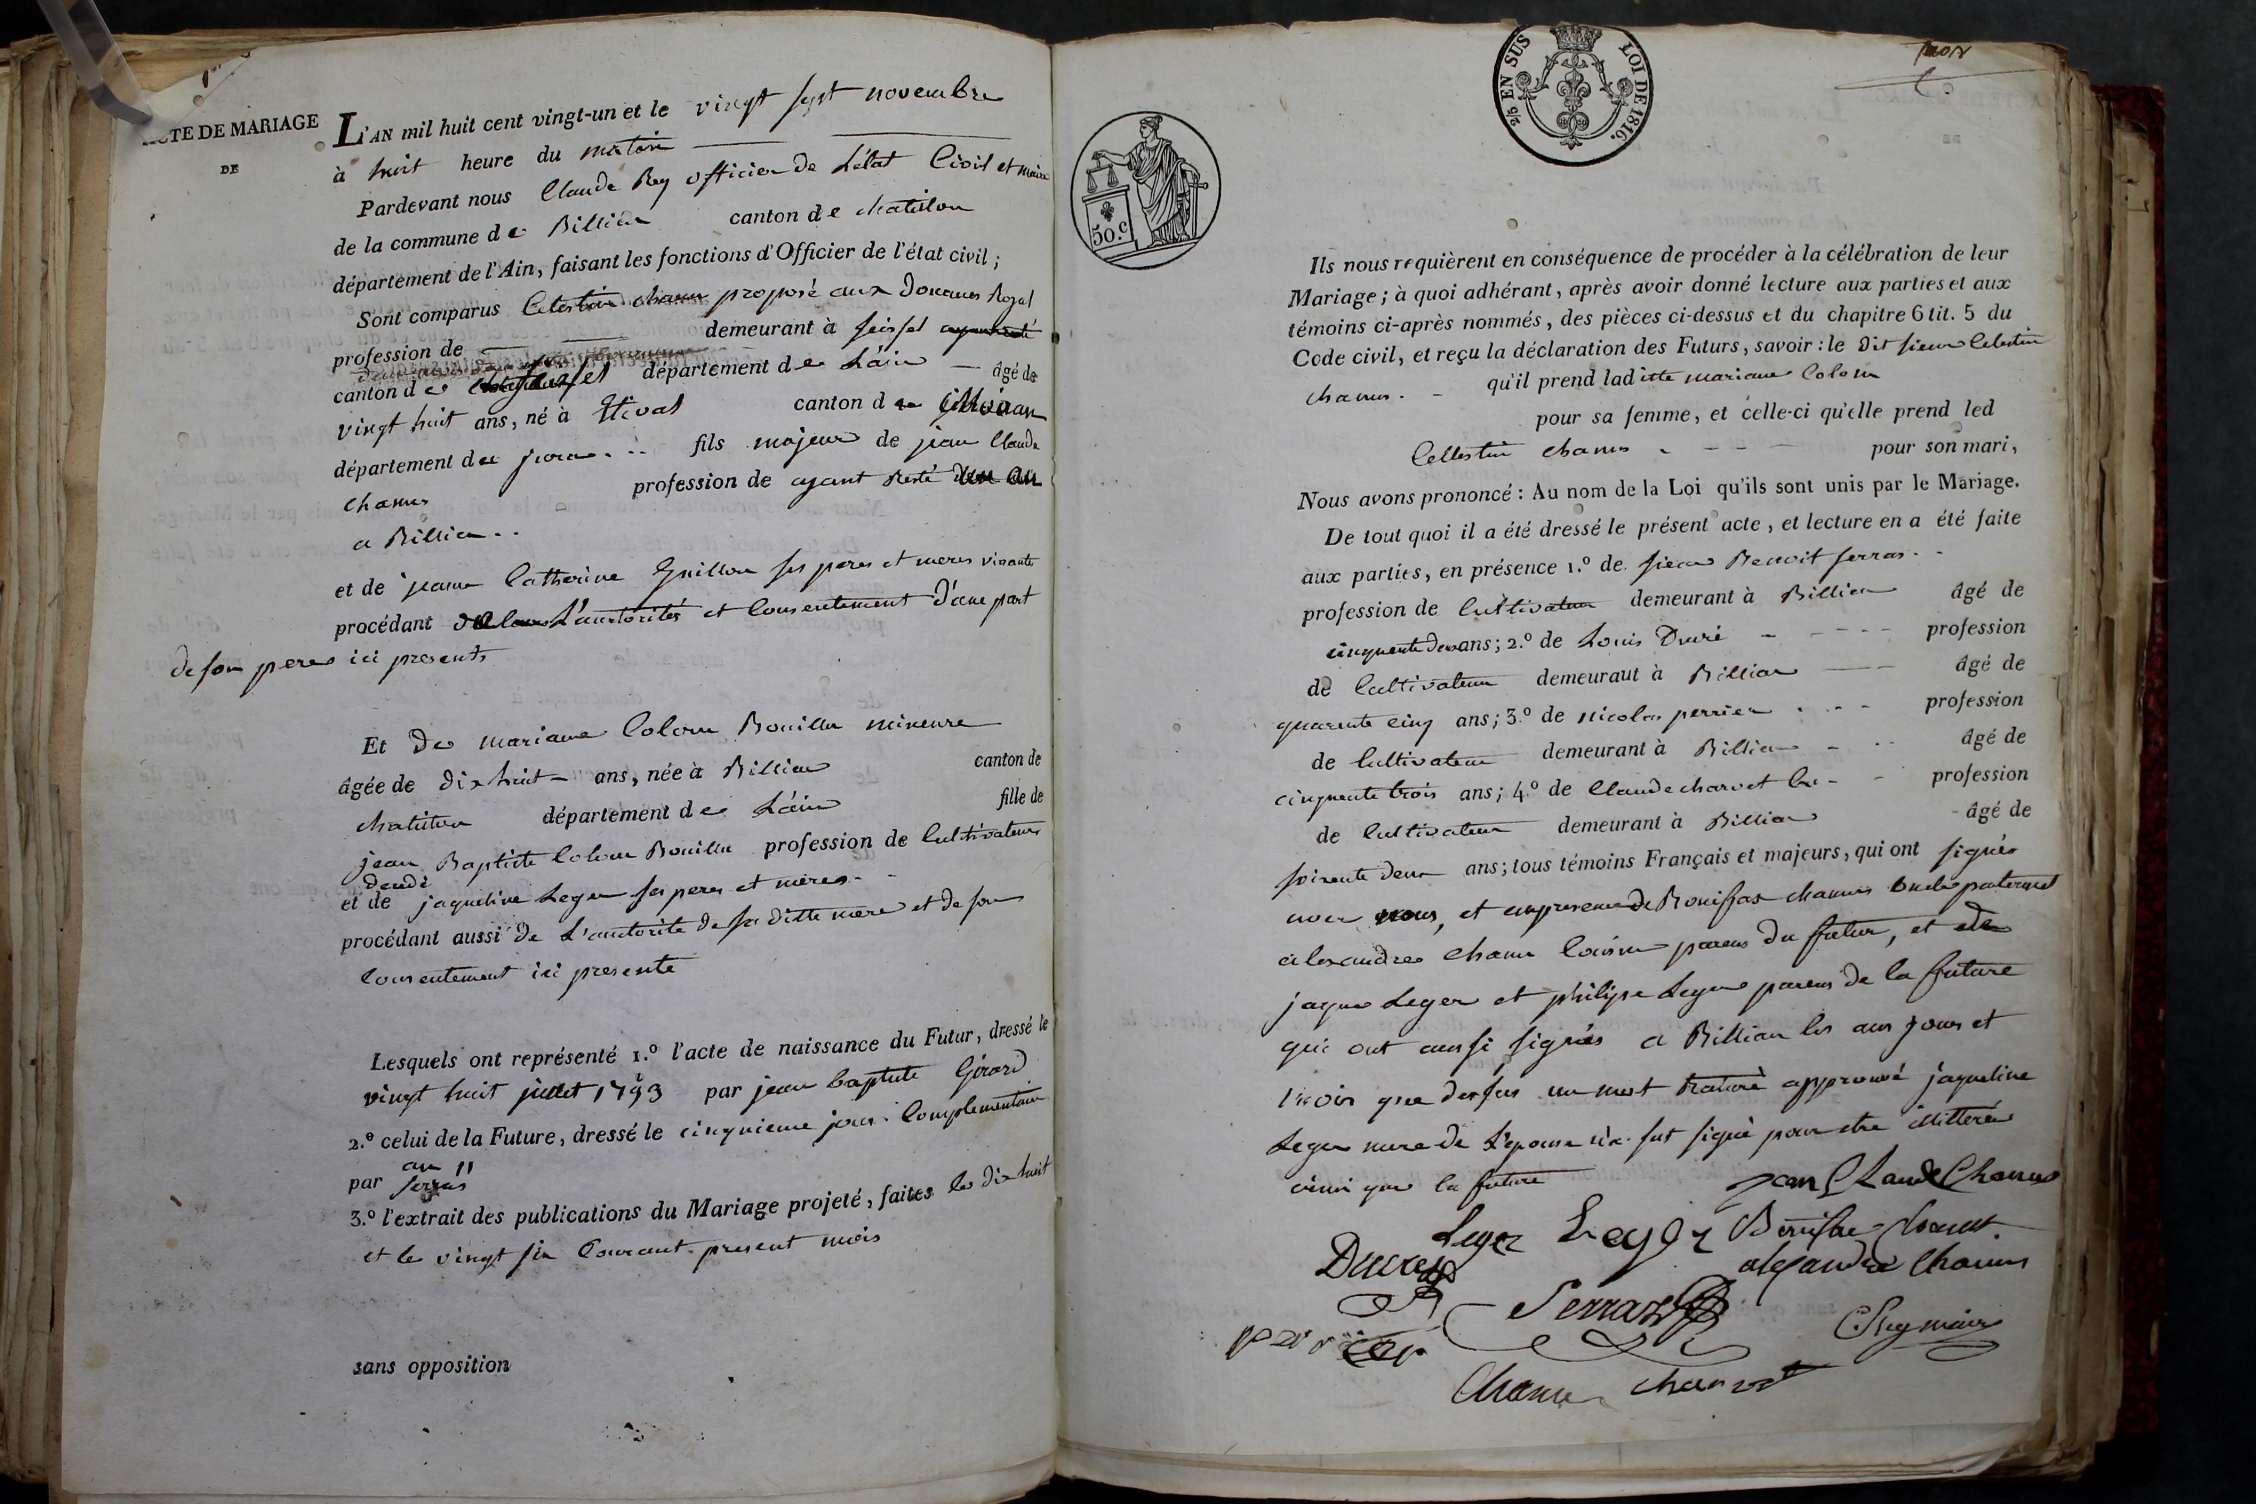 ACTE DE MARIAGE
DE
L'AN mil huit cent vingt-un et le vingt sept novembre
à huit heure du matin
Pardevant nous Claude Rey officier de L'état Civil et maire
de la commune de Billiat canton de chatillon
département de l'Ain, faisant les fonctions d'Officier de l'état civil ;
Sont comparus Celestin chanus proposé aux Douanes Royal
profession de demeurant à seissel
canton de seissel département de L'ain âgé de
vingt huit ans, né à Etival canton de
département de jura fils majeur de jean Claude
chanus profession de ayant Resté un an
a Billia
et de jeanne Catherine Guillon ses peres et meres vivants
procédant de L'auctorités et Consentement d'une part
de son peres ici presents
Et de mariane Colom Bouillu mineure
âgée de dix huit ans, née à Billiat canton de
chatillon département de L'ain fille de
jean Baptiste Colom Bouillu profession de Cultivateurs
et de jaqueline Leger ses peres et meres
procédant aussi de L'autorité de sa ditte mere et de son
Consentement ici presente
Lesquels ont représenté 1.º l'acte de naissance du Futur, dressé le
vingt huit juillet 1793 par jean baptiste Girard
2.º celui de la Future, dressé le cinquieme jour Complementair
an 11
par serras
3.º l'extrait des publications du Mariage projeté, faites le dix huit
et le vingt six Courant present mois
sans opposition
2/5 EN SUS LOI DE 1816.
50.c
Ils nous requièrent en conséquence de procéder à la célébration de leur
Mariage ; à quoi adhérant, après avoir donné lecture aux parties et aux
témoins ci-après nommés, des pièces ci-dessus et du chapitre 6 tit. 5 du
Code civil, et reçu la déclaration des Futurs, savoir : le dit sieur Celestin
chanus. qu'il prend laditte mariane Colom
pour sa femme, et celle-ci qu'elle prend led
Cellestin chanus pour son mari,
Nous avons prononcé : Au nom de la Loi qu'ils sont unis par le Mariage.
De tout quoi il a été dressé le présent acte, et lecture en a été faite
aux parties, en présence 1.º de sieur Benoit serras
profession de Cultivateur demeurant à Billiat âgé de
cinquante deux ans ; 2.º de Louis Ducré profession
de Cultivateur demeuraut à Billiat âgé de
quarente cinq ans ; 3.º de nicolas perrier profession
de Cultivateur demeurant à Billiat âgé de
cinquente trois ans ; 4.º de Claude charvet profession
de Cultivateur demeurant à Billiat âgé de
soixente deux ans ; tous témoins Français et majeurs, qui ont signés
avec nous, et en presence de Bonifas chanus oncle paternel
alexandre chanus Cousin parens du futur, et de
jaque Leger et philipe Leger parens de la future
qui ont aussi signés a Billiat les ans jours et
mois que dessus un mot raturé approuvé jaqueline
Leger mere de L'epouse n'a sut signé pour etre illitteré
ainsi que la future
jean Claude Chanus
Leger Leger Bonifas Chanus
Ducrey alexandre Chanus
Serraz
C. Rey maire
Chanus charvet